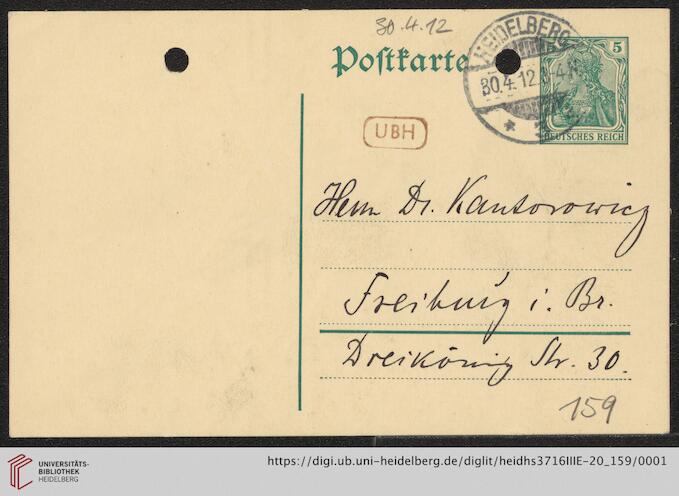 30.4.12
Postkarte
HEIDELBERG
30.4.12.
5
DEUTSCHES REICH
UBH
Herrn Dr. Kantorowicz
Freiburg i. Br.
Dreikönig Str. 30.
159
UNIVERSITÄTS-
BIBLIOTHEK
HEIDELBERG
https://digi.ub.uni-heidelberg.de/diglit/heidhs3716IIIE-20_159/0001